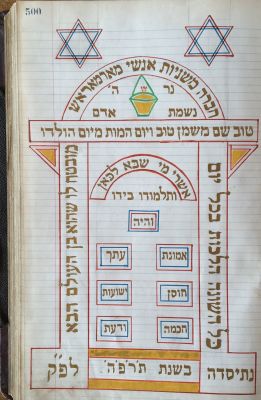 500
חברה משניות אנשי מארמאראש
נר ה'
נשמת אדם
טוב שם משמן טוב ויום המות מיום הולדו
כל השונה הלכות בכל יום
מובטח לו שהוא בן העולם הבא
אשרי מי שבא לכאן
ותלמודו בידו
והיה
אמונת עתך
חוסן ישועות
חכמת ודעת
נתיסדה בשנת ת'ר'פ'ה' לפ"ק